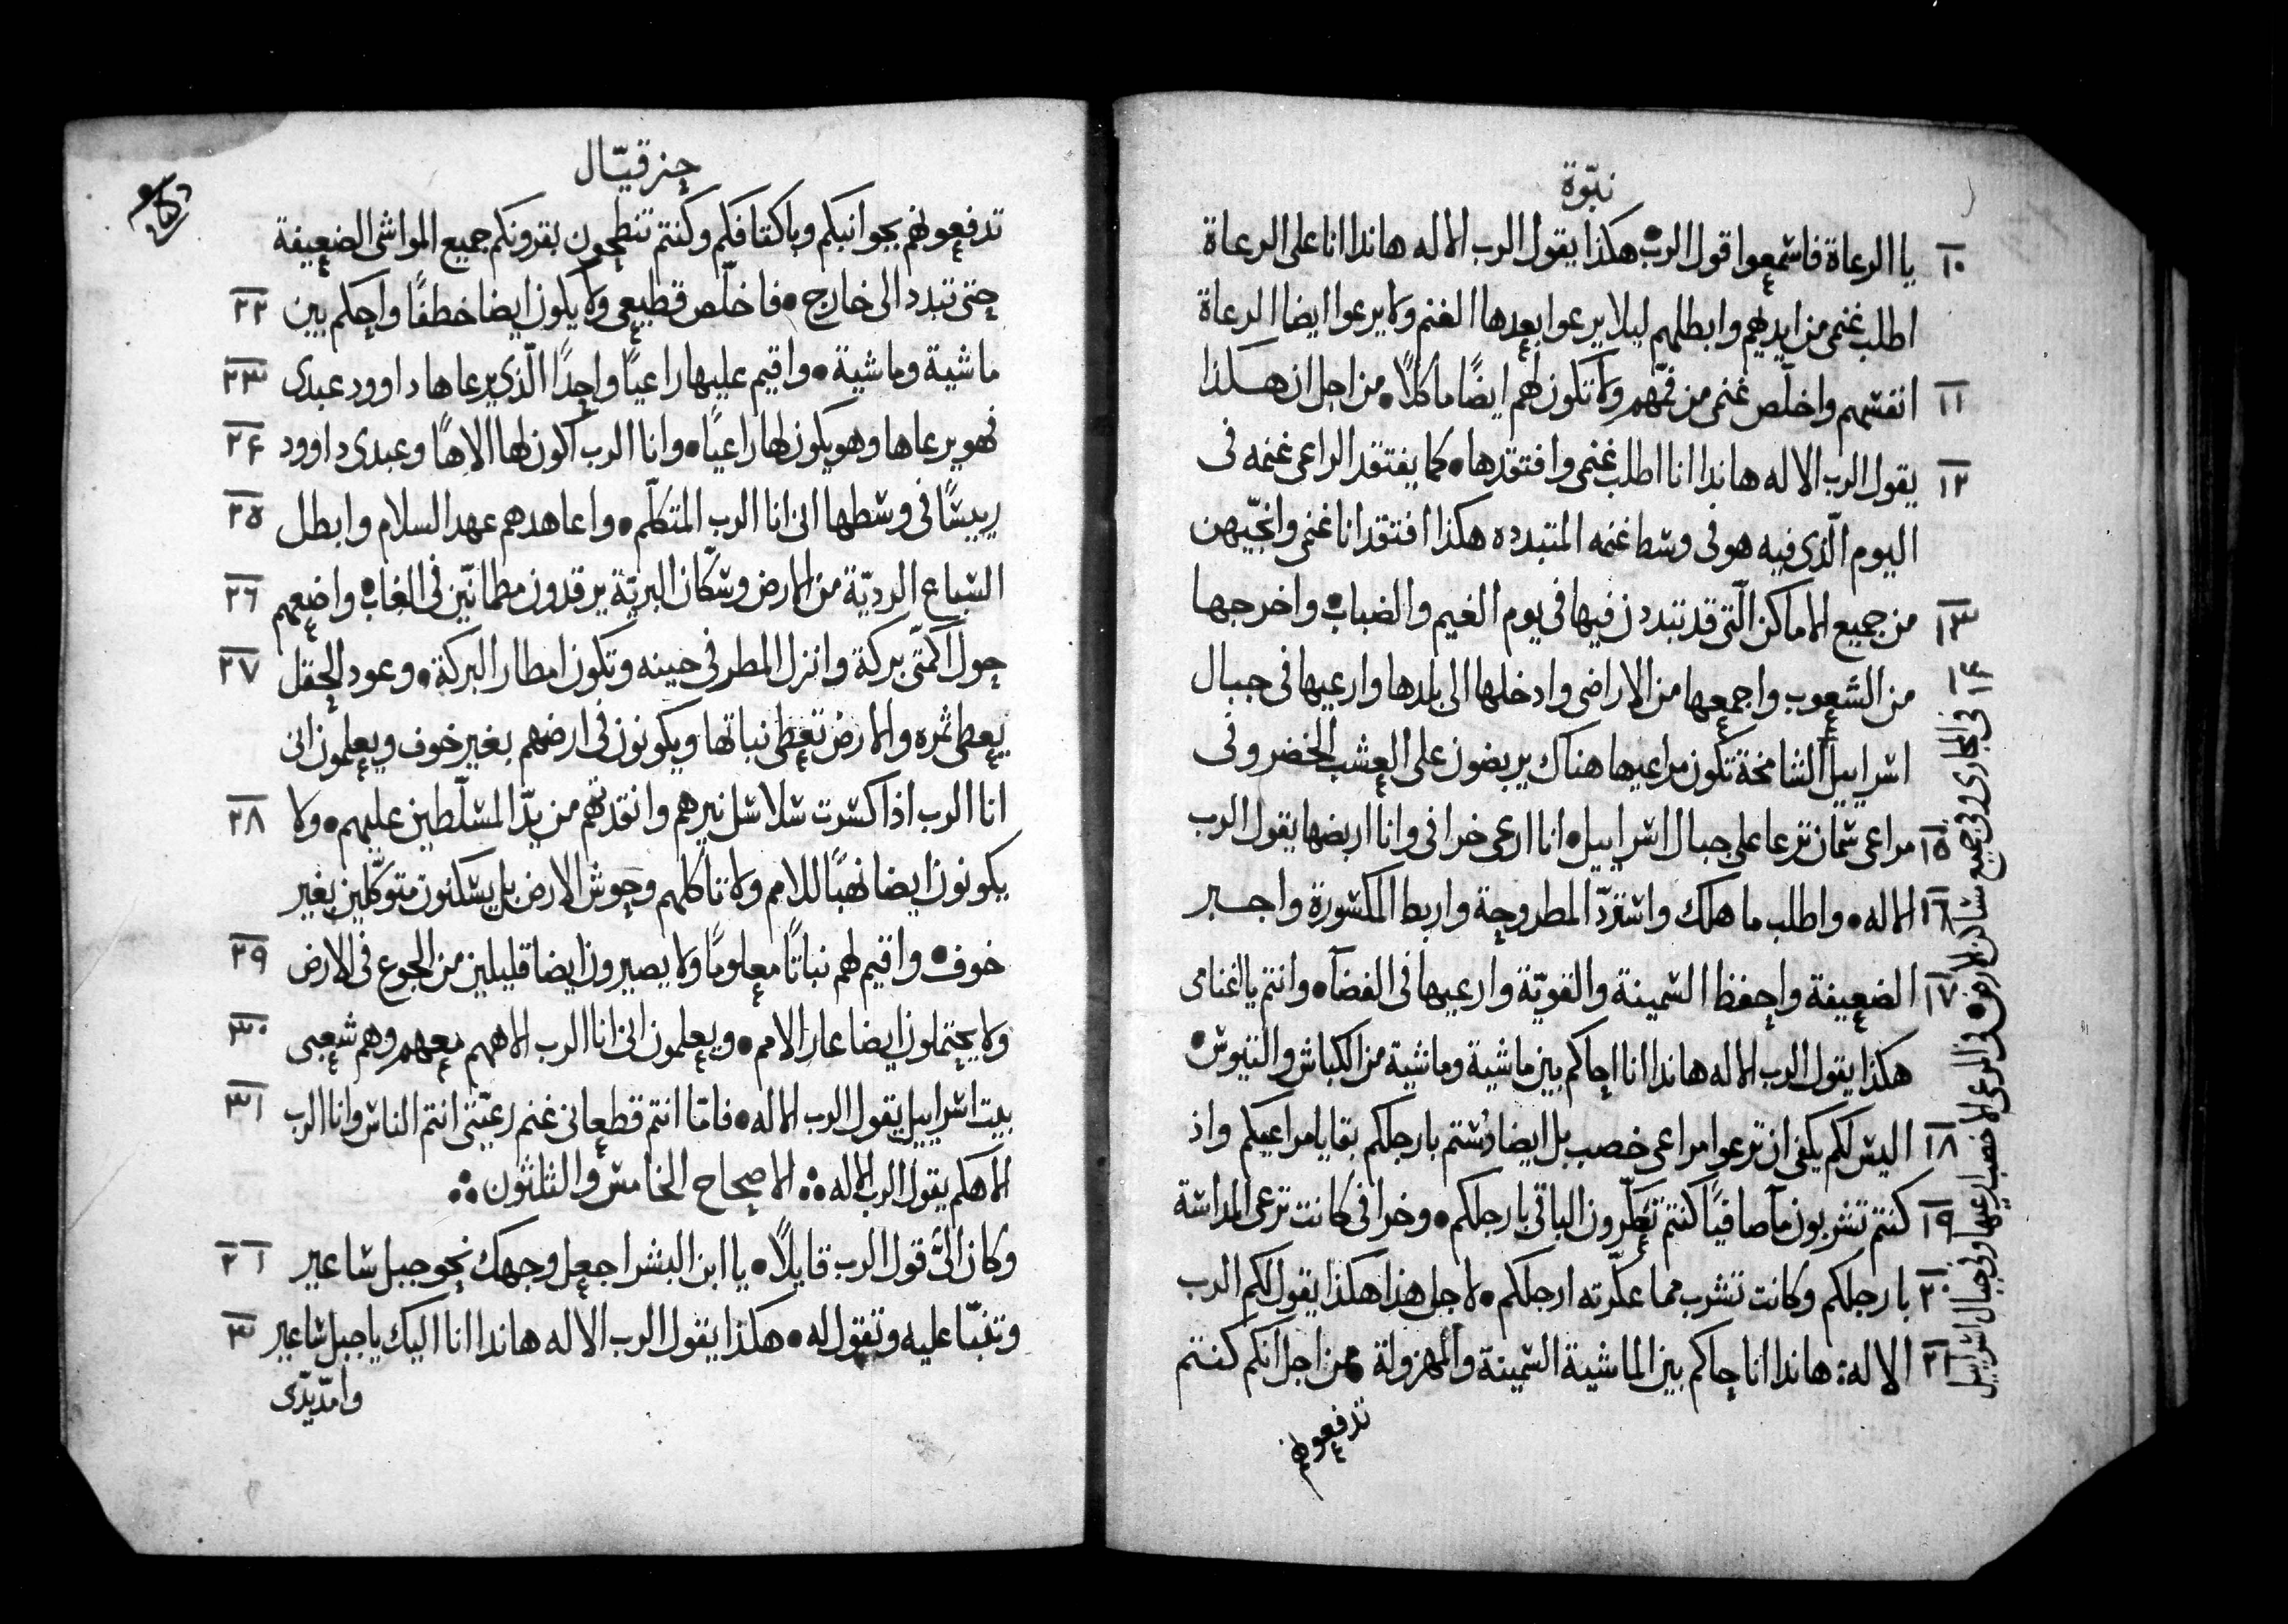 نبوّة
١٠ يا الرعاة فاسمعوا قول الرب • هكذا يقول الرب الاله هاندا انا على الرعاة
اطلب غنمى من ايديهم وابطلهم ليلا يرعوا بعدها الغنم ولا يرعوا ايضا الرعاة
١١ انفسهم واخلّص غنمى من فمّهم ولا تكون لهم ايضًا ماكلاً • من اجل ان هكذا
١٢ يقول الرب الاله هاندا انا اطلب غنمى وافتقدها • كما يفتقد الراعى غنمه فى
اليوم الّذى فيه هو فى وسط غنمه المتبدده هكذا افتقد انا غنمى وانجّيهن
١٣ من جميع الاماكن الّتى قد تبددن فيها فى يوم الغيم والضباب • واخرجها
من الشعوب واجمعها من الاراضى وادخلها الى بلدها وارعيها فى جبال
اسراييل الشامخة تكون مراعيها هناك يربضون على العشب الخضر وفى
١٥ مراعى سمان ترعا على جبال اسراييل • انا ارعى خرافى وانا اربضها يقول الرب
١٦ الاله • واطلب ما هلك واستردّ المطروحة واربط المكسورة واجبر
١٧ الضعيفة واحفظ السمينة والقويّة وارعيها فى القضآ • وانتم يا اغنامى
هكذا يقول الرب الاله هاندا انا احاكم بين ماشية وماشية من الكباش والتيوس •
١٨ اليس لكم يكفى ان ترعوا مراعى خصب بل ايضا دُستم بارجلكم بقايا مراعيكم واذ
١٩ كنتم تشربون مآ صافيًا كنتم تعكّرون الباقى بارجلكم • وخرافى كانت ترعى المداسة
٢٠ بارجلكم وكانت تشرب مما عكّرته ارجلكم • لاجل هذا هكذا يقول لكم الرب
٢١ الاله: هاندا انا حاكم بين الماشية السمينة والمهزولة • من اجل انكم كنتم
تدفعونهم
١٤ فى المجارى وفى جميع مساكن الارض • فى المرعى الاخصب ارعيها وفى جبال اسراييل
حزقيّال
تدفعونهم بجوانبكم وباكتافكم وكنتم تنطحون بقرونكم جميع المواشى الضعيفة
حتى تبدد الى خارج • فاخلّص قطيعى ولا يكون ايضا خطفًا واحكم بين ٢٢
ماشية وماشية • واقيم عليها راعيًا واحدًا الّذى يرعاها داوود عبدى ٢٣
فهو يرعاها وهو يكون لها راعيًا • وانا الرب اكون لها الاهًا وعبدى داوود ٢٤
رييسًا فى وسطها انى انا الرب المتكلّم • واعاهدهم عهد السلام وابطل ٢٥
السباع الرديّة من الارض وسكّان البريّة يرقدون مطمانّين فى الغاب • واضعهم ٢٦
حول اكمتى بركة وانزل المطر فى حينه وتكون امطار البركة • وعود الحقل ٢٧
يعطى ثمره والارض تعطى نباتها ويكونون فى ارضهم بغير خوف ويعلمون انى
انا الرب اذا كسرت سلاسل نيرهم وانقذتهم من يدّ المسلّطين عليهم • ولا ٢٨
يكونون ايضا نهبًا للامم ولا تاكلهم وحوش الارض بل يسكنون متوكّلين بغير
خوف • واقيم لهم نباتًا معلومًا ولا يصيرون ايضا قليلين من الجوع فى الارض ٢٩
ولا يحتملون ايضا عار الامم • ويعلمون انى انا الرب الاههم معهم وهم شعبى ٣٠
بيت اسراييل يقول الرب الاله • فامّا انتم قطعانى غنم رعيّتى انتم الناس وانا الرب ٣١
الاهكم يقول الرب الاله ⁘ الاصحاح الخامس والثلثون ⁘
وكان الىّ قول الرب قايلاً • يا ابن البشر اجعل وجهك نحو جبل ساعير ١ ٢
وتنبّا عليه وتقول له • هكذا يقول الرب الاله هاندا انا اليك يا جبل ساعير ٣
وامدّ يدّى